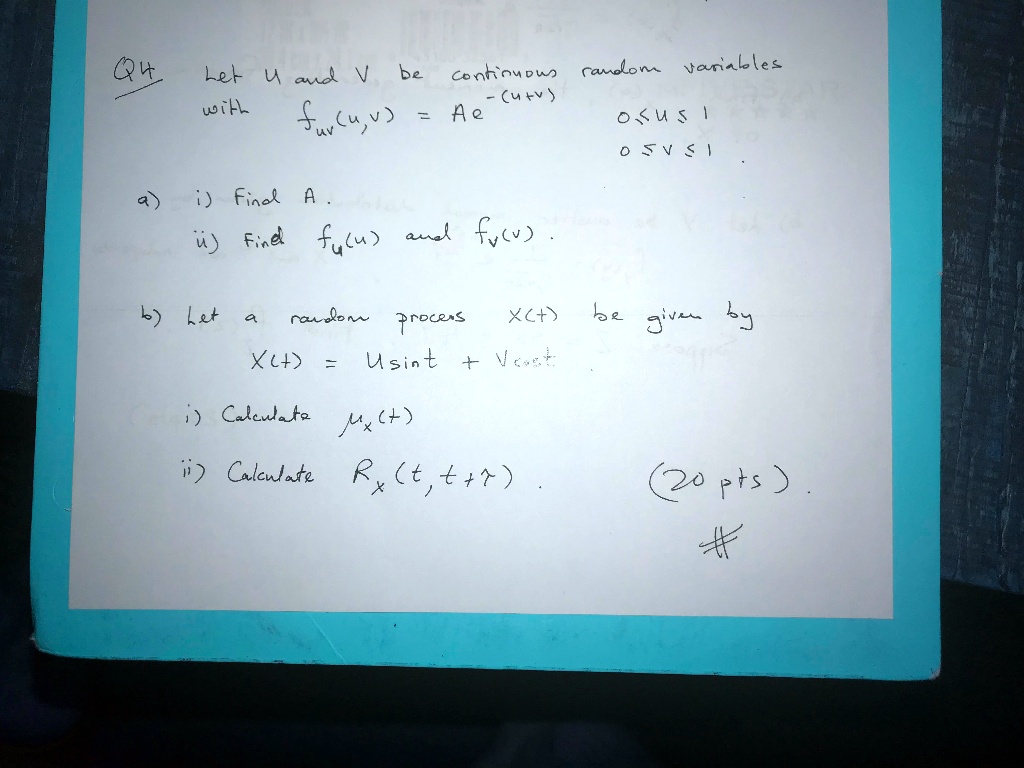 Q4 Let U and V be continuous random variables
with f_uv(u,v) = Ae^-(u+v) 0≤u≤1
0≤v≤1.
a) i) Find A.
ii) Find f_u(u) and f_v(v).
b) Let a random process X(t) be given by
X(t) = U sint + V cost.
i) Calculate μ_x(t)
ii) Calculate R_x(t, t+τ). (20 pts).
#